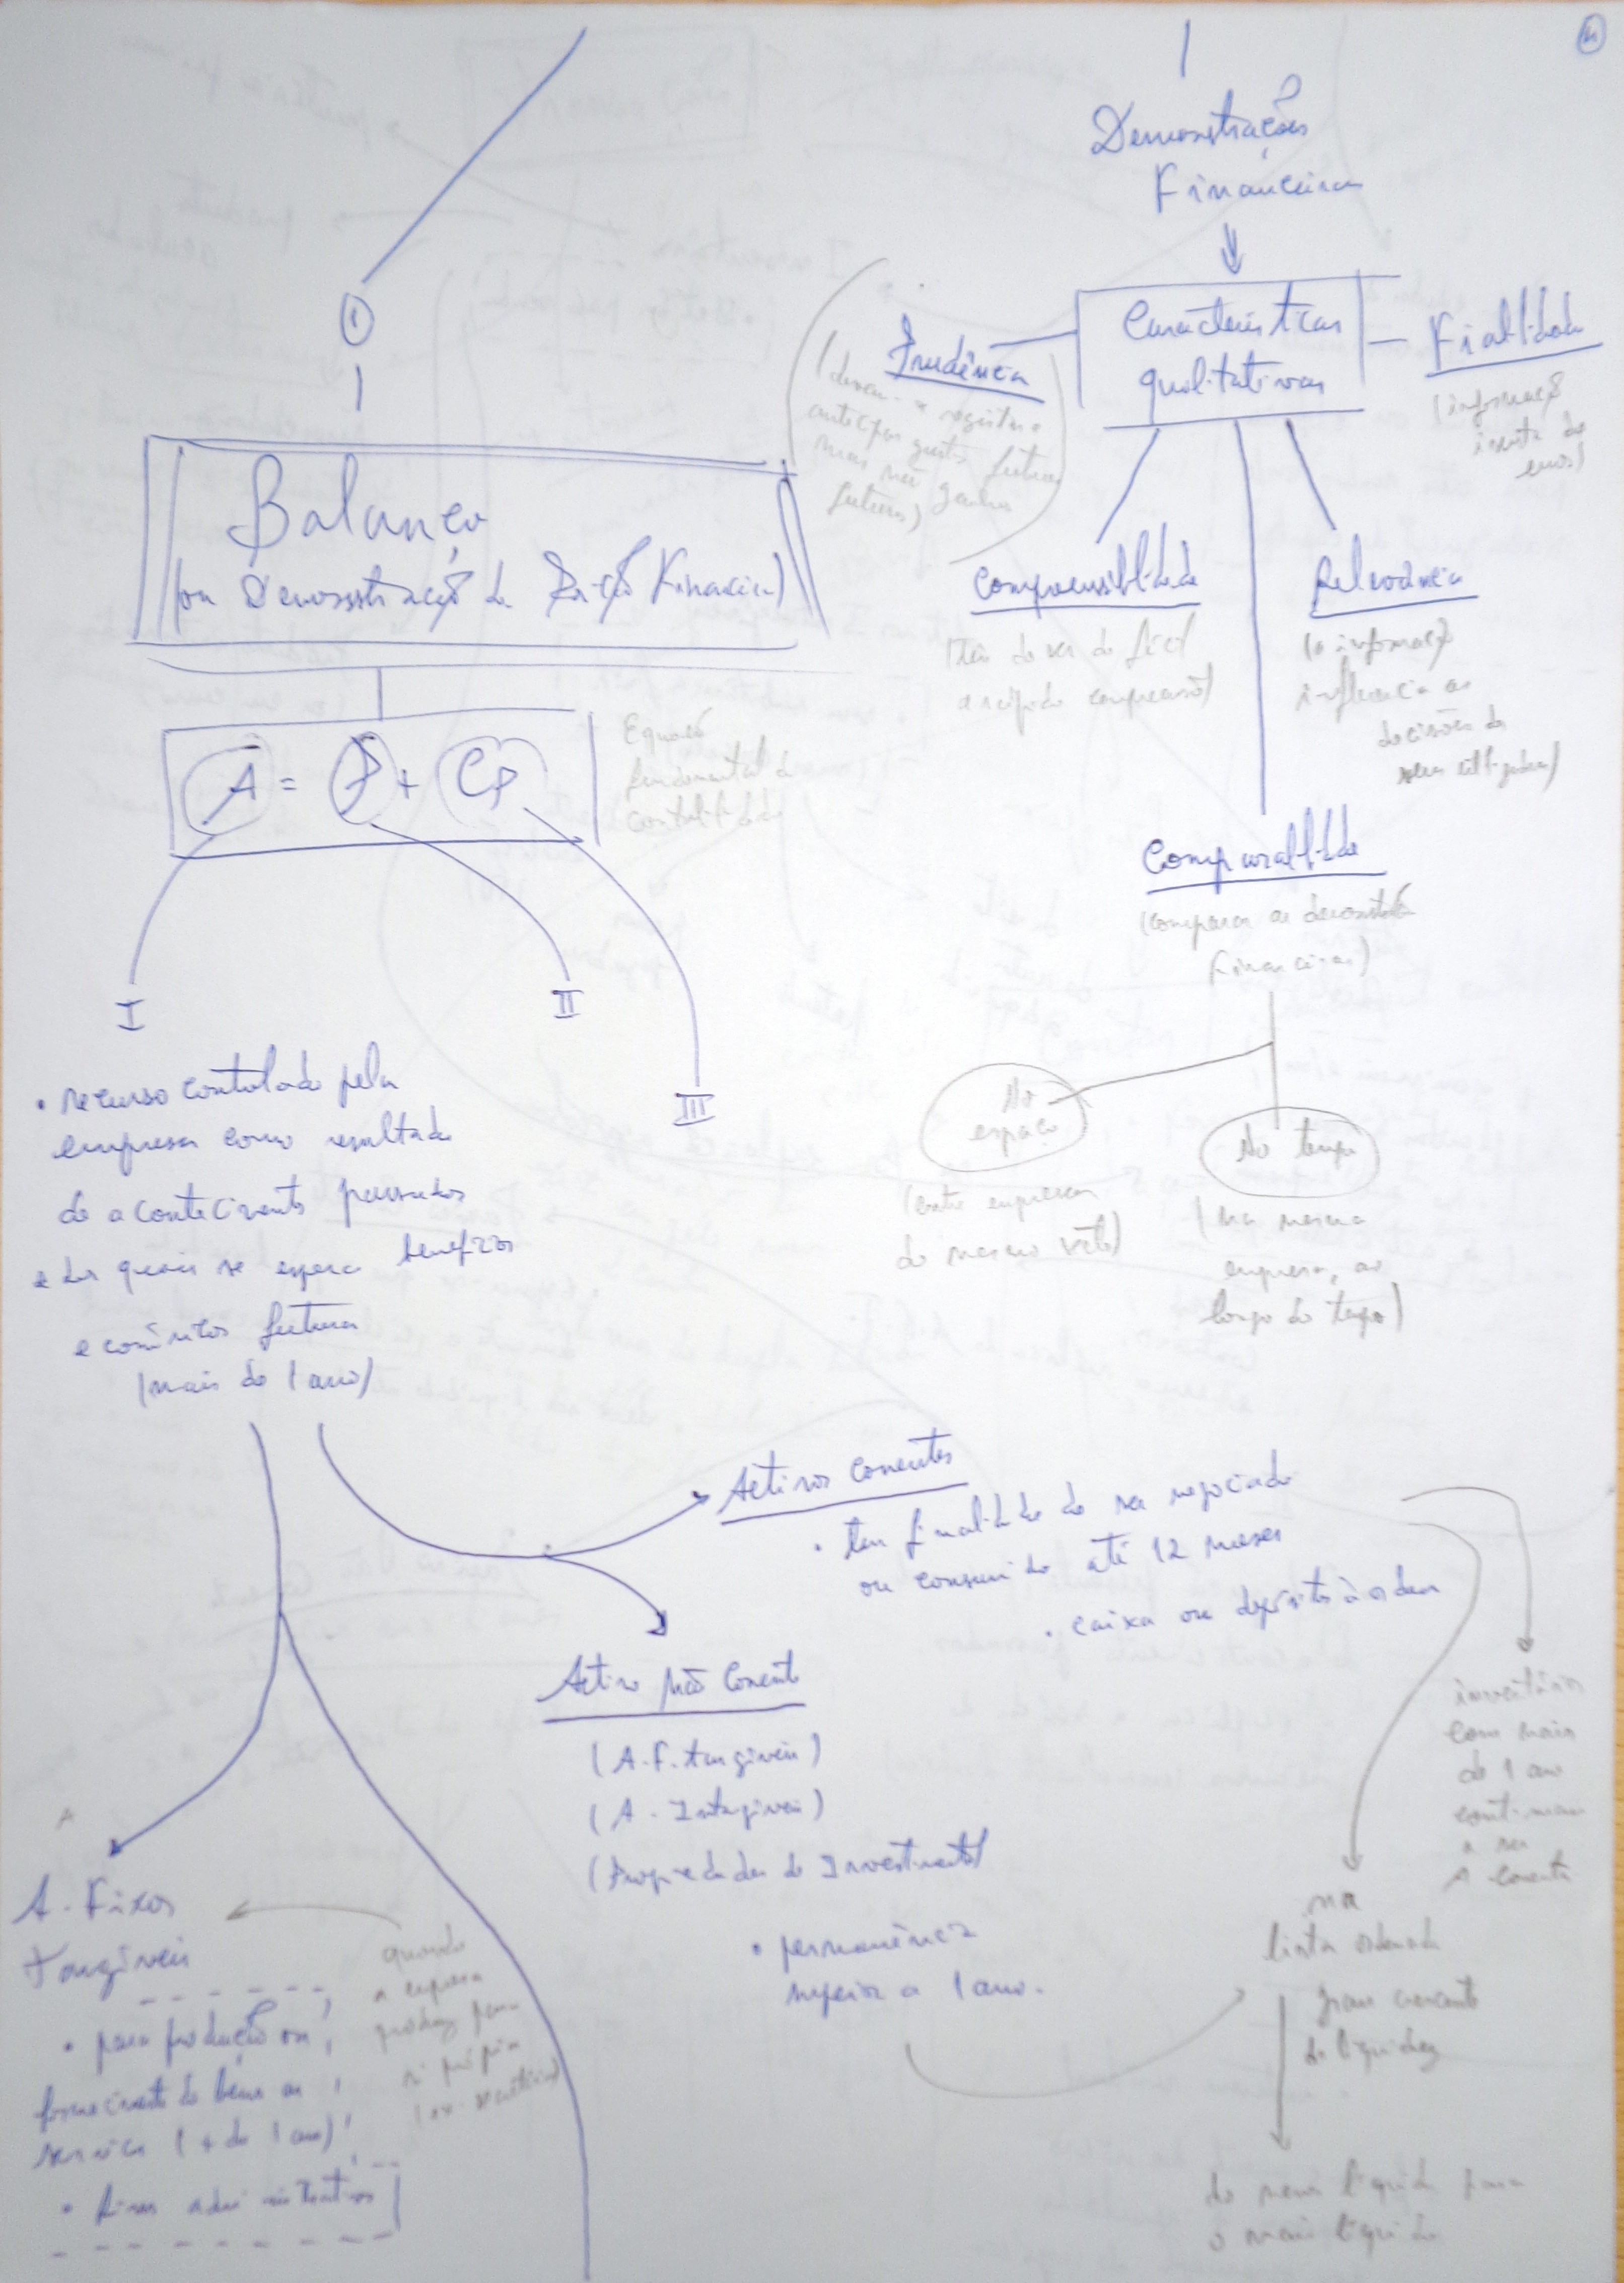 Demonstrações
Financeiras
Características
qualitativas
Prudência
(devem-se registar e
antecipar gastos futuros
mas não ganhos
futuros)
Fiabilidade
(informação
isenta de
erros)
Compreensibilidade
(Têm de ser de fácil
e rápida compreensão)
Relevância
(a informação
influencia as
decisões dos
seus utilizadores)
Comparabilidade
(comparar as demonstrações
financeiras)
No
espaço
(entre empresas
do mesmo
No tempo
(na mesma
empresa, ao
longo do tempo)
①
Balanço
(ou Demonstração da Posição Financeira)
A = P + CP
Equação
fundamental da
contabilidade
I
II
III
• recurso controlado pela
empresa como resultado
de acontecimentos passados
e dos quais se espera benefícios
económicos futuros
(mais de 1 ano)
Activos Correntes
• tem finalidade de ser negociado
ou consumido até 12 meses
• caixa ou depósitos à ordem
Activo Não Corrente
(A.F. tangíveis)
(A. Intangíveis)
(Propriedades de Investimento)
• permanência
superior a 1 ano.
inventários
com mais
de 1 ano
continuam
a ser
A Corrente
lista ordenada
grau crescente
de liquidez
do menos líquido para
o mais líquido
A. Fixos
Tangíveis
quando
a empresa
produz para
si própria
• para produção ou
fornecimento de bens ou
serviços (+ de 1 ano)
• fins administrativos